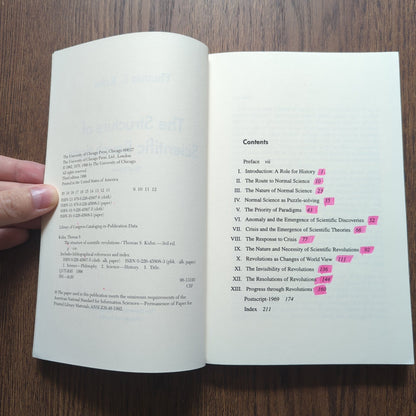 The University of Chicago Press, Chicago 60637
The University of Chicago Press, Ltd., London
© 1962, 1970, 1996 by The University of Chicago
All rights reserved.
Third edition 1996
Printed in the United States of America
Library of Congress Cataloging-in-Publication Data
Kuhn, Thomas S.
The structure of scientific revolutions / Thomas S. Kuhn. —3rd ed.
p. cm.
Includes bibliographical references and index.
1. Science—Philosophy. 2. Science—History. I. Title.
1996
CIP
The paper used in this publication meets the minimum requirements of the
American National Standard for Information Sciences—Permanence of Paper for
Printed Library Materials, ANSI
Contents
Preface vii
I. Introduction: A Role for History 1
II. The Route to Normal Science 10
III. The Nature of Normal Science 23
IV. Normal Science as Puzzle-solving 35
V. The Priority of Paradigms 43
VI. Anomaly and the Emergence of Scientific Discoveries 52
VII. Crisis and the Emergence of Scientific Theories 66
VIII. The Response to Crisis 77
IX. The Nature and Necessity of Scientific Revolutions
X. Revolutions as Changes of World View 111
XI. The Invisibility of Revolutions 136
XII. The Resolutions of Revolutions 144
XIII. Progress through Revolutions 160
Postscript-1969 174
Index 211